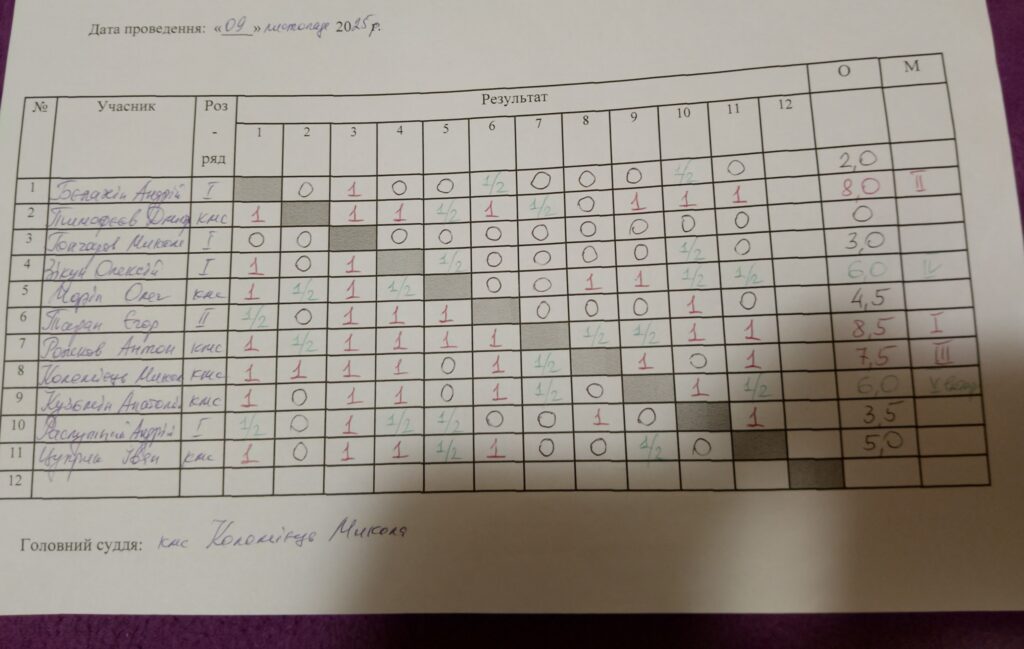 Дата проведення: «09» листопада 2025 р.
№ Учасник Роз-ряд Результат О М
1 2 3 4 5 6 7 8 9 10 11 12
1 Андрій I 0 1 0 0 1/2 0 0 0 1/2 0 2,0
2 Тимофєєв кмс 1 1 1 1/2 1 1/2 0 1 1 1 8,0 II
3 Гончаров Микола I 0 0 0 0 0 0 0 0 0 0 0
4 Зікун Олексій I 1 0 1 1/2 0 0 0 0 1/2 0 3,0
5 Олег кмс 1 1/2 1 1/2 0 0 1 1 1/2 1/2 6,0 IV
6 Таран Єгор II 1/2 0 1 1 1 0 0 0 1 0 4,5
7 Антон кмс 1 1/2 1 1 1 1 1/2 1/2 1 1 8,5 I
8 Коломієць Микола кмс 1 1 1 1 0 1 1/2 1 0 1 7,5 III
9 Анатолій кмс 1 0 1 1 0 1 1/2 0 1 1/2 6,0
10 Андрій I 1/2 0 1 1/2 1/2 0 0 1 0 1 3,5
11 Іван кмс 1 0 1 1 1/2 1 0 0 1/2 0 5,0
12
Головний суддя: кмс Коломієць Микола